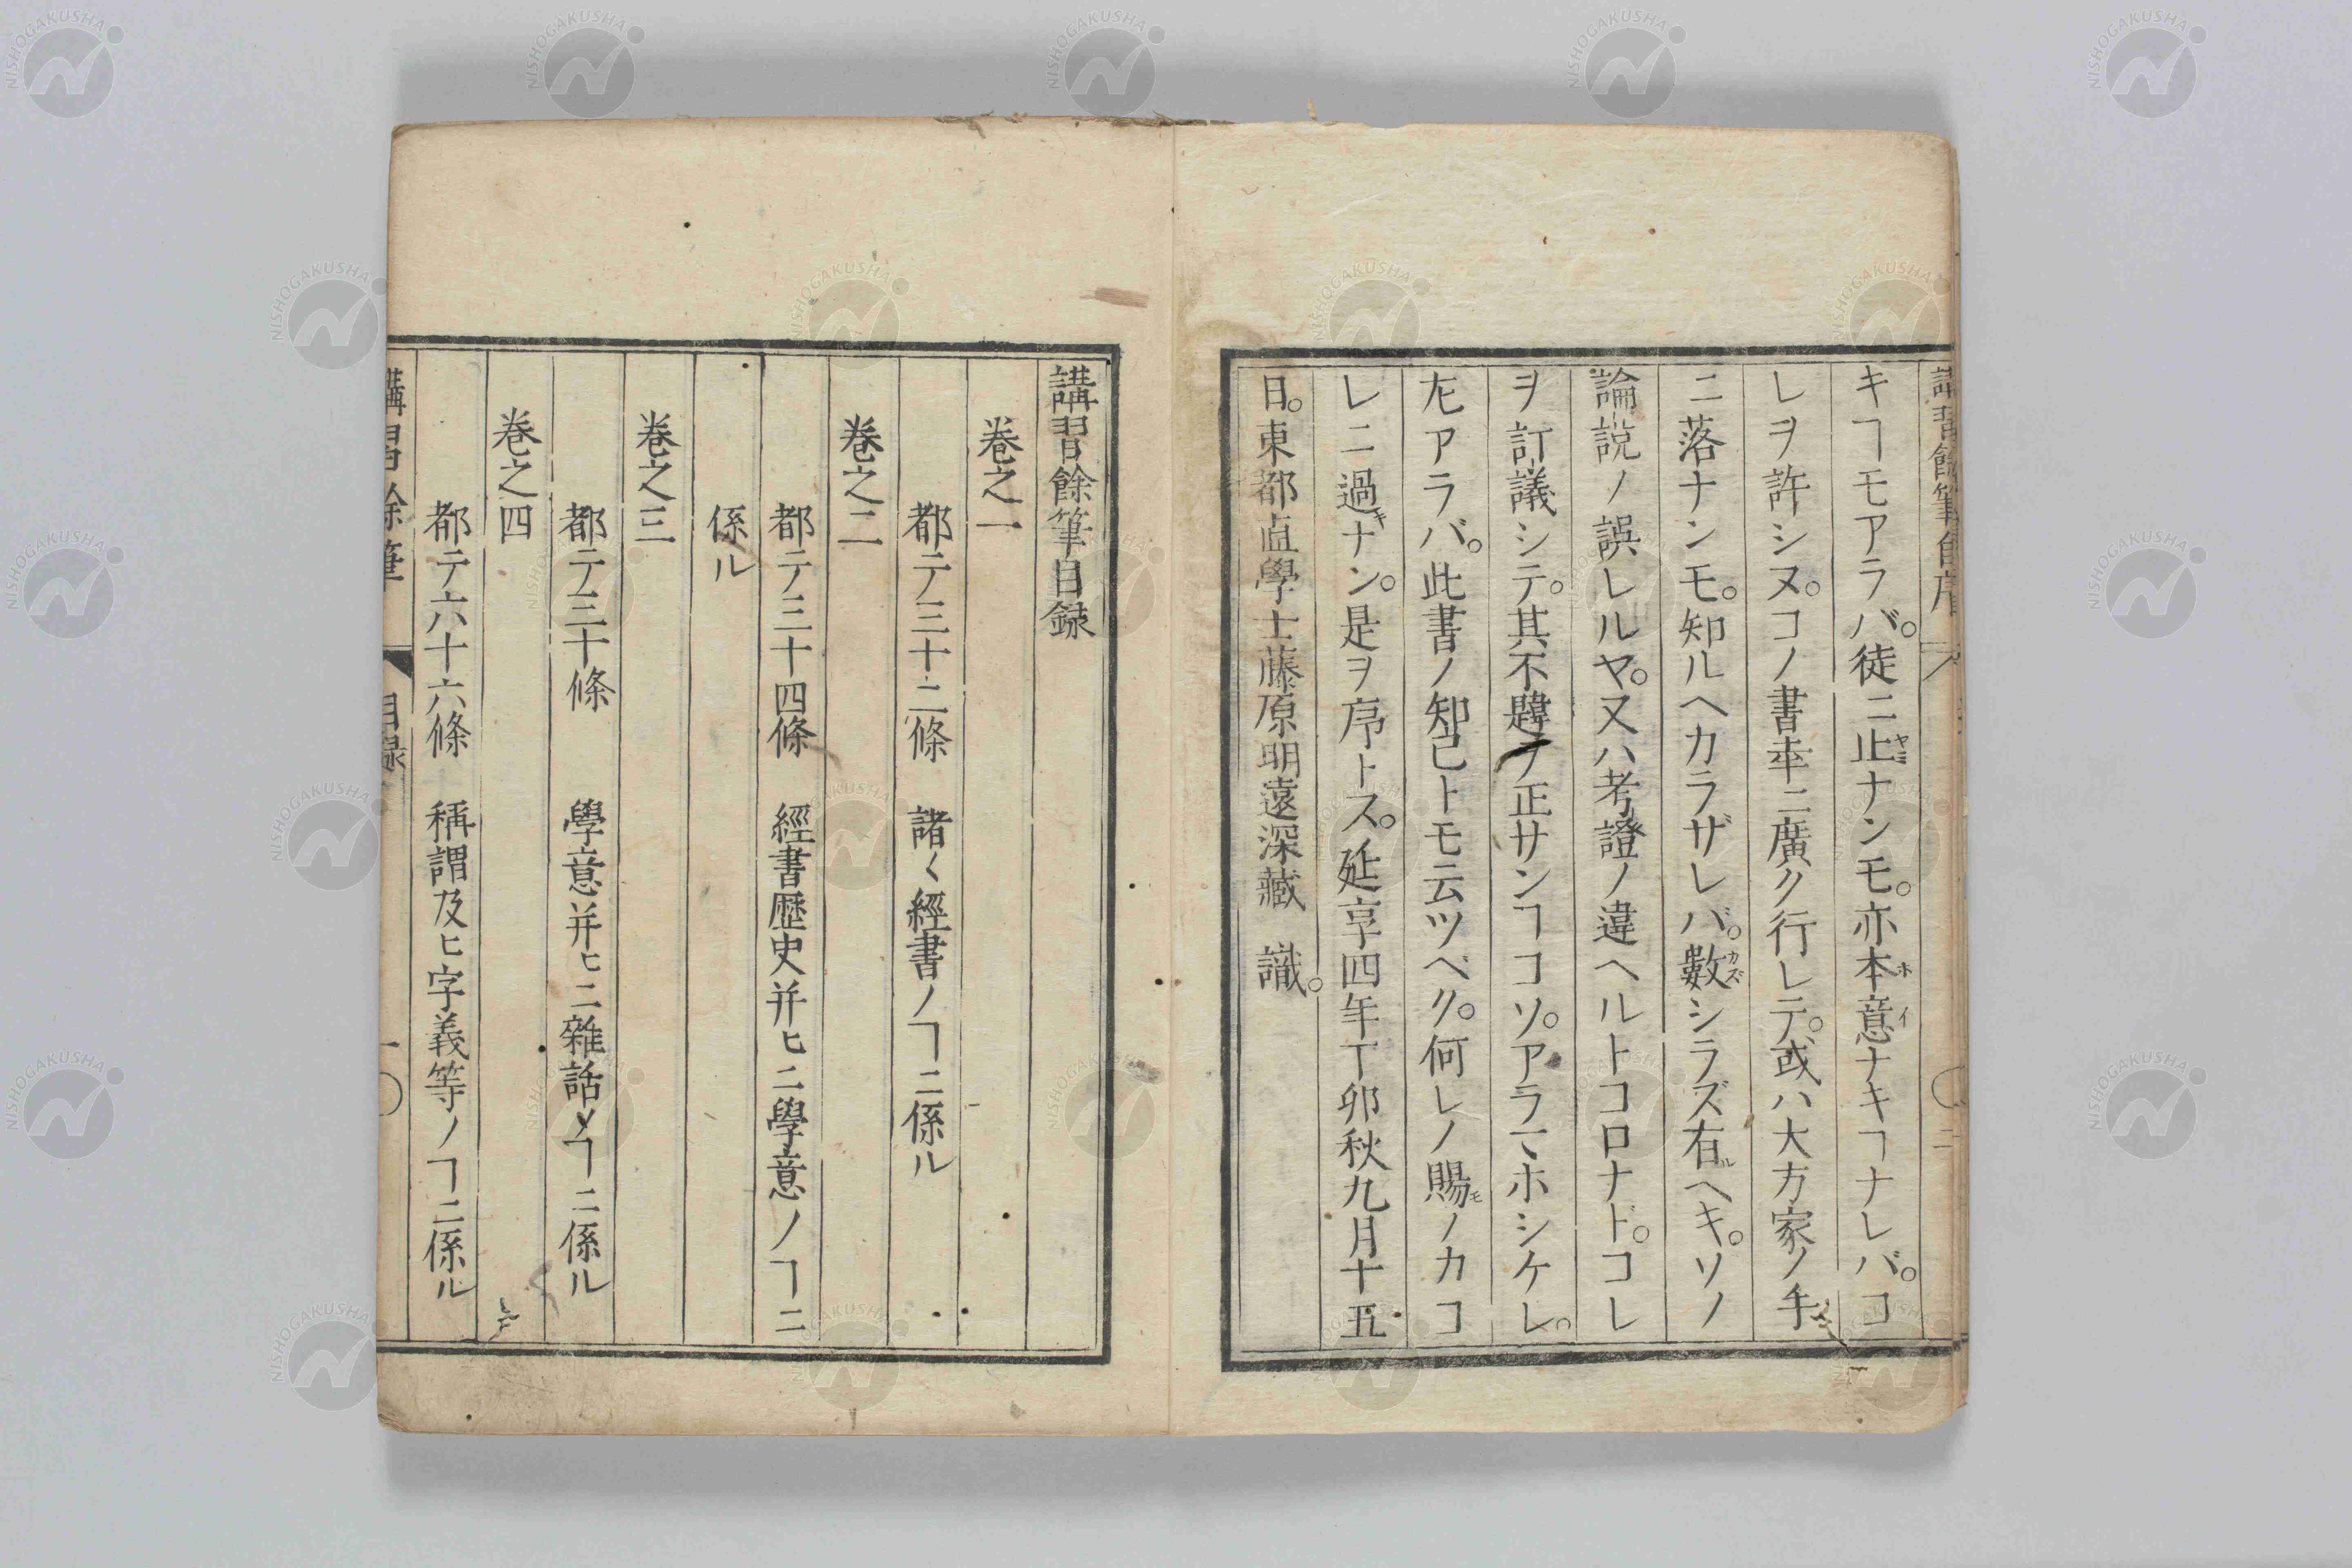 講習餘筆自序
キヿモアラバ。徒ニ止ナンモ。亦本意ナキヿナレバ。コ
レヲ許シヌ。コノ書幸ニ廣ク行レテ。或ハ大方家ノ手
ニ落ナンモ。知ルヘカラザレバ。數シラズ右ヘキ。ソノ
論説ノ誤レルヤ。又ハ考證ノ違ヘルトコロナド。コレ
ヲ訂議シテ。其不韙ヲ正サンヿコソ。アラマホシケレ。
左アラバ。此書ノ知己トモ云ツベク。何レノ賜ノカコ
レニ過ナン。是ヲ序トス。延享四年丁卯秋九月十五
日。東都直學士藤原明遠深藏　識。
講習餘筆目録
巻之一
都テ三十二條　諸〱經書ノヿニ係ル
巻之二
都テ三十四條　經書歴史并ヒニ學意ノヿニ
係ル
巻之三
都テ三十條　學意并ヒニ雜話ノヿニ係ル
巻之四
都テ六十六條　稱謂及ヒ字義等ノヿニ係ル
講習餘筆　目録　一
NISHOGAKUSHA